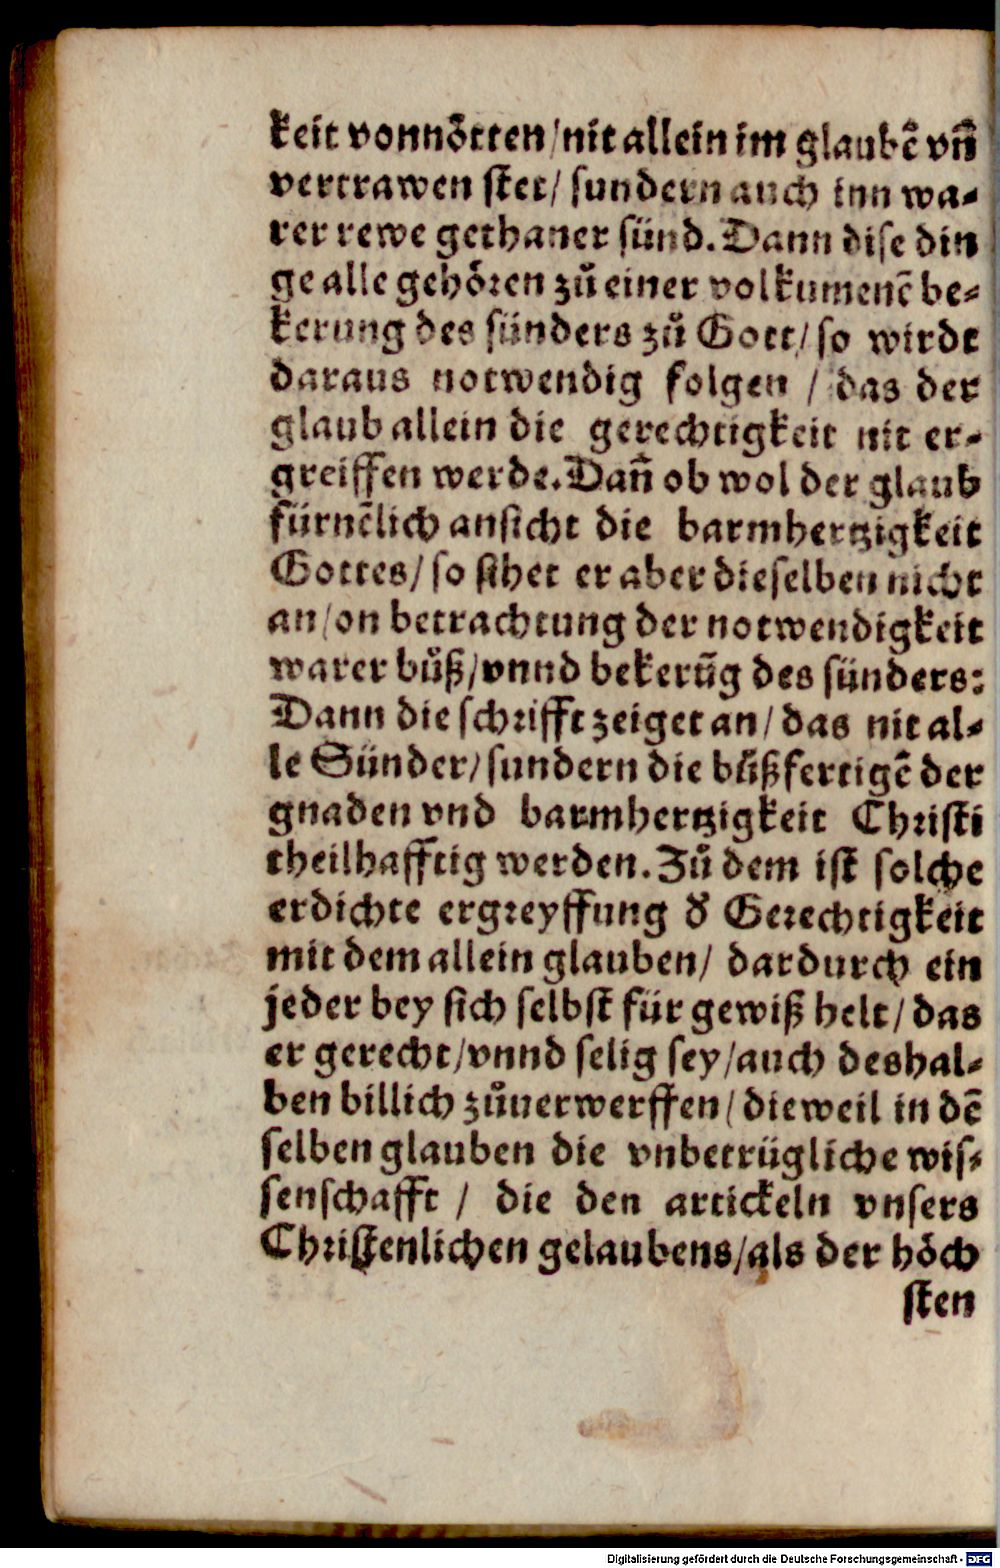 keit vonnötten/nit allein im glaubẽ vñ
vertrawen stet/ sundern auch inn wa-
rer rewe gethaner sünd. Dann dise din
ge alle gehören zů einer volkumenẽ be-
kerung des sünders zů Gott/ so wirdt
daraus notwendig folgen / das der
glaub allein die gerechtigkeit nit er-
greiffen werde. Dañ ob wol der glaub
fürnẽlich ansicht die barmhertzigkeit
Gottes/ so sihet er aber dieselben nicht
an/on betrachtung der notwendigkeit
warer bůß/vnnd bekerũg des sünders:
Dann die schrifft zeiget an/ das nit al-
le Sünder/sundern die bůßfertigẽ der
gnaden vnd barmhertzigkeit Christi
theilhafftig werden. Zů dem ist solche
erdichte ergreyffung d' Gerechtigkeit
mit dem allein glauben/ dardurch ein
jeder bey sich selbst für gewiß helt/ das
er gerecht/vnnd selig sey/auch deshal-
ben billich zůuerwerffen/ dieweil in dẽ
selben glauben die vnbetrügliche wis-
senschafft / die den artickeln vnsers
Christenlichen gelaubens/als der höch
sten
Digitalisierung gefördert durch die Deutsche Forschungsgemeinschaft - DFG